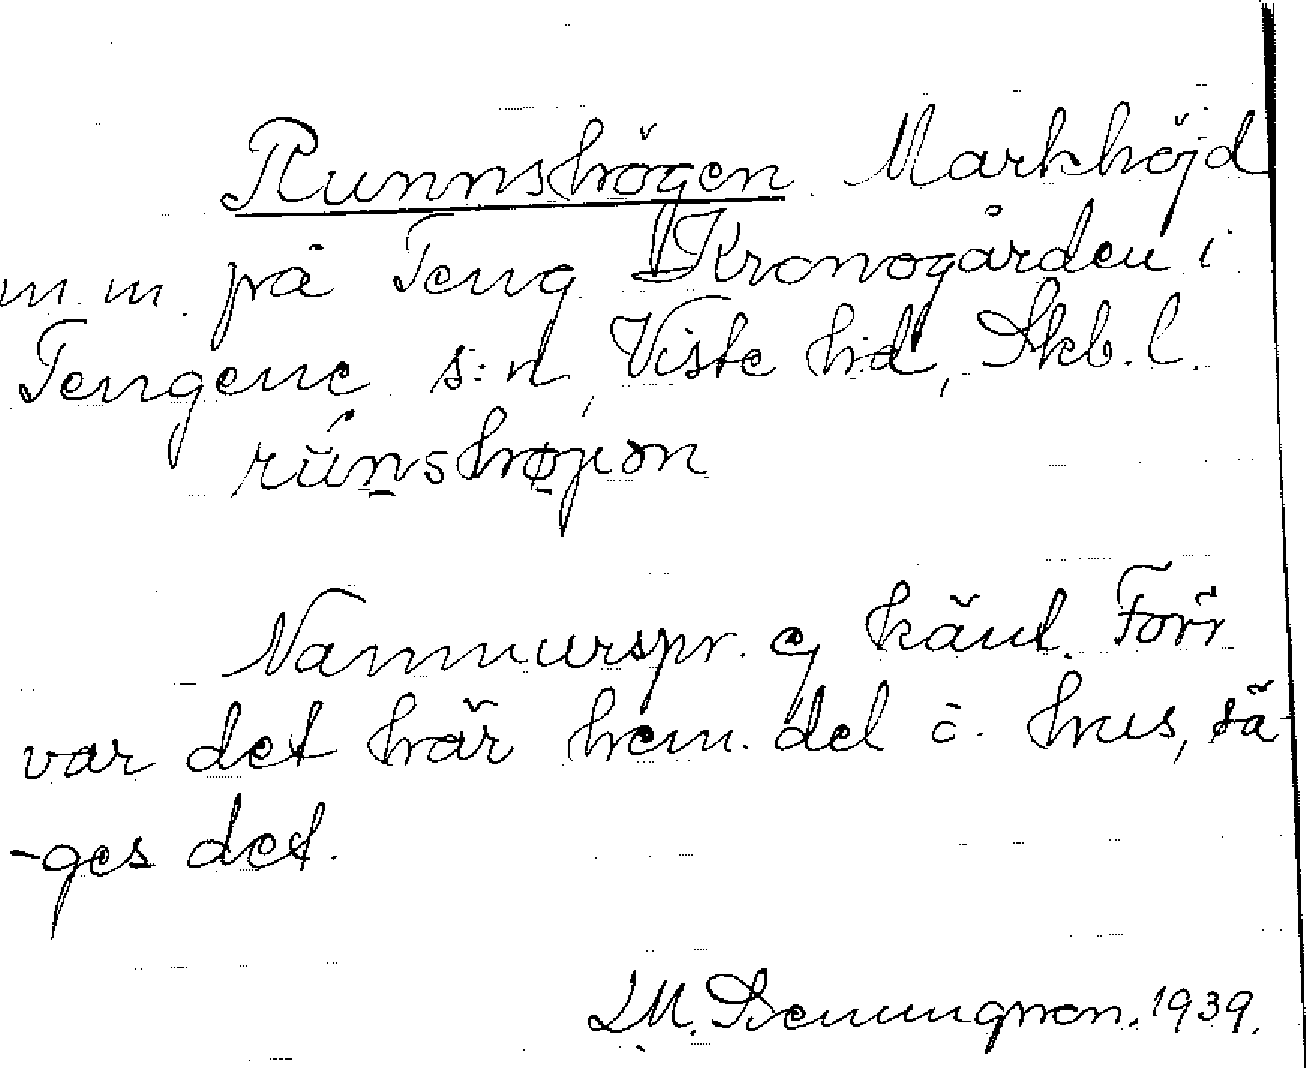 Runnshögen. Markhöjd
m.m. på Teng Kronogården i
Tengene s:n, Viste hd, Skb. l.
Namnurspr. ej känt. Förr
var det här hem. del o. hus, sä-
-ges det.
1939.